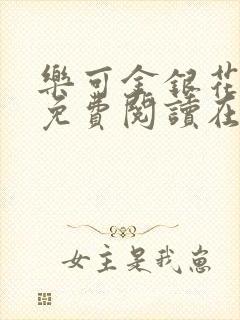 樂可金銀花
免費閱讀在
女主是我崽